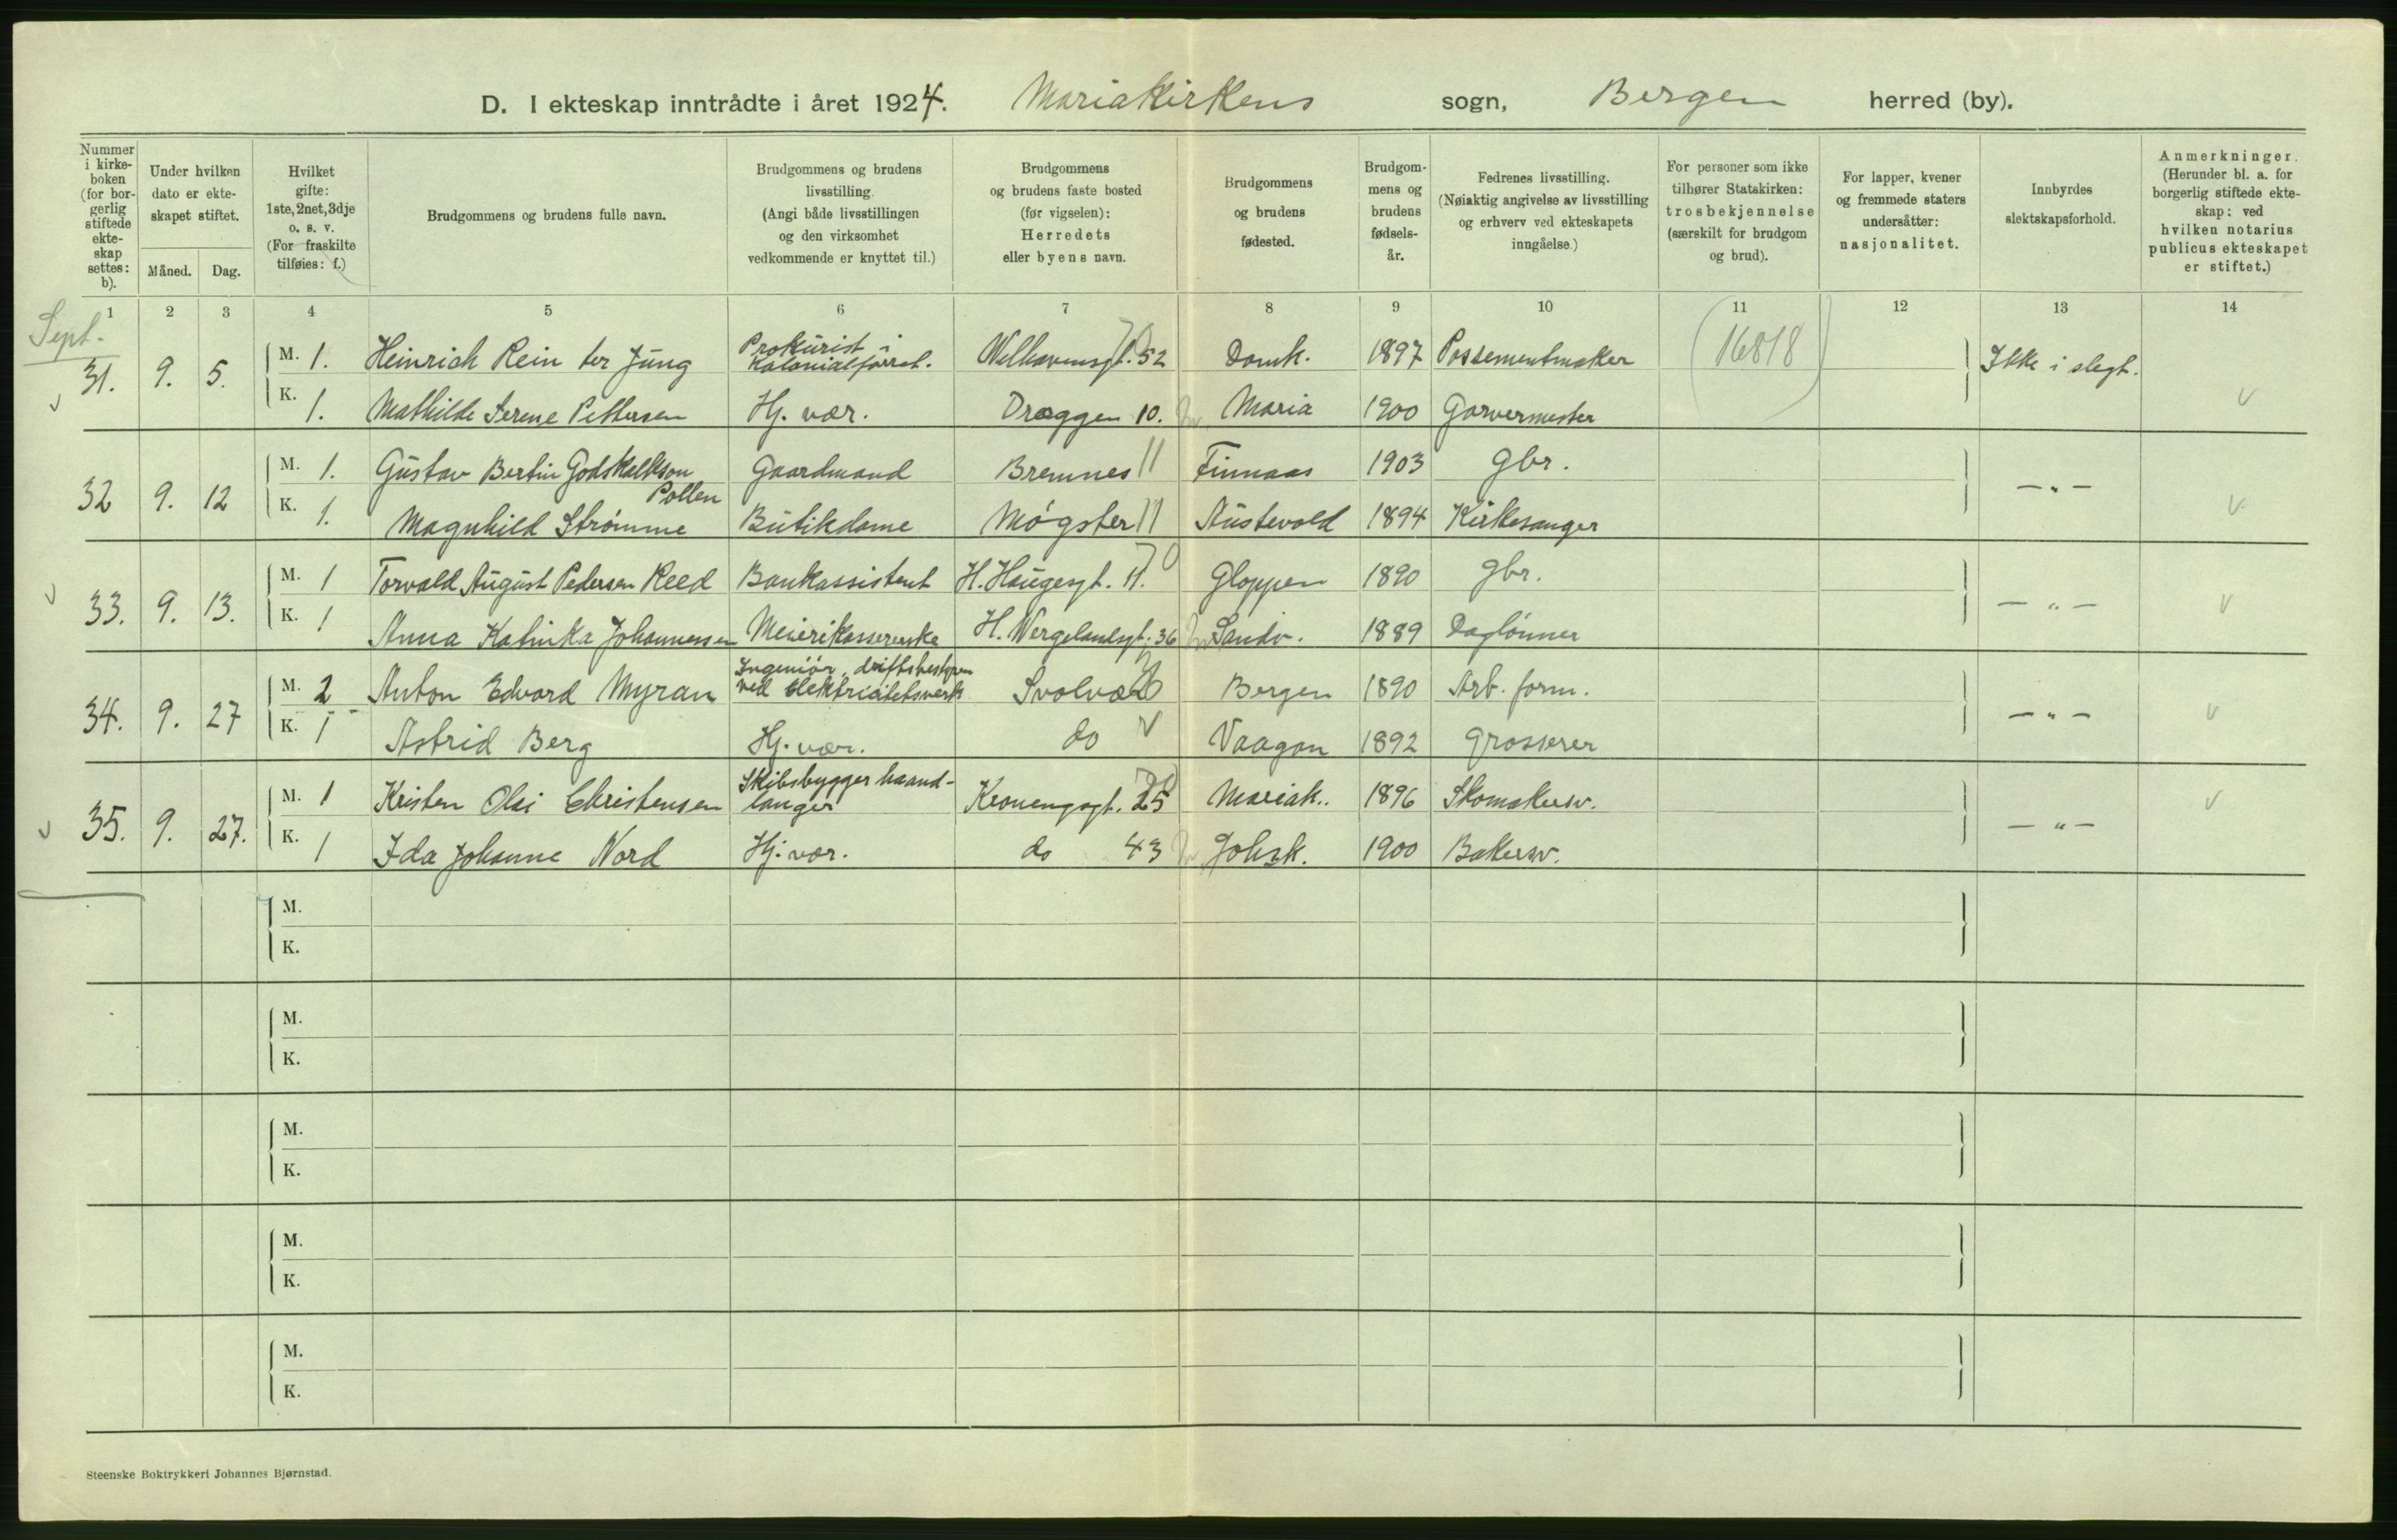 D. I ekteskap inntrådte i året 1924. Mariakirkens sogn, Bergen herred (by).
Nummer i kirke-boken (for borgerlig stiftede ekteskap settes: b).
Under hvilken dato er ekteskapet stiftet.
Måned. Dag.
Hvilket gifte: 1ste, 2net, 3dje o. s. v. (For fraskilte tilføies: f.)
Brudgommens og brudens fulle navn.
Brudgommens og brudens livsstilling. (Angi både livsstillingen og den virksomhet vedkommende er knyttet til.)
Brudgommens og brudens faste bosted (før vigselen): Herredets eller byens navn.
Brudgommens og brudens fødested.
Brudgommens og brudens fødselsår.
Fedrenes livsstilling. (Nøiaktig angivelse av livsstilling og erhverv ved ekteskapets inngåelse.)
For personer som ikke tilhører Statskirken: trosbekjennelse (særskilt for brudgom og brud).
For lapper, kvener og fremmede staters undersåtter: nasjonalitet.
Innbyrdes slektskapsforhold.
Anmerkninger. (Herunder bl. a. for borgerlig stiftede ekteskap: ved hvilken notarius publicus ekteskapet er stiftet.)
1 2 3 4 5 6 7 8 9 10 11 12 13 14
Sept.
31. 9. 5. M. 1. Heinrich Rein ter Jüng Prokürist i Kolonialforret. Welhavensgt. 52 Domk. 1897 Possementmaker 16818 Ikke i slegt.
K. 1. Mathilde Serene Pettersen Hj. vær. Dræggen 10. Maria 1900 Garvermester v
32 9. 12 M. 1. Güstav Bertin Godskalkson Pollen Gaardmand Bremnes 11 Finnaas 1903 gbr. — " —
K. 1. Magnhild Strømme Bütikdame Møgster 11 Aüstevold 1894 Kirkesanger v
33. 9. 13. M. 1 Torvald Aügüst Pedersen Reed Bankassistent H. Haügesgt. 11. Gloppen 1890 gbr. — " —
K. 1 Anna Katinka Johannessen Meierikassererske H. Wergelandsgt. 36 Sandv. 1889 Daglønner v
34. 9. 27 M. 2 Anton Edvard Myran Ingeniør, driftsbestyrer ved Elektricitetsverk Svolvær Bergen 1890 Arb. form. — " —
K. 1 Astrid Berg Hj. vær. do v Vaagan 1892 Grosserer v
35. 9. 27. M. 1 Kristen Olai Christensen Skibsbygger haandlanger Kronengsgt. 25 Mariak. 1896 Skomakersv. — " —
K. 1 Ida Johanne Nord Hj. vær. do 43 Johsk. 1900 Bakersv. v
M.
K.
M.
K.
M.
K.
M.
K.
M.
K.
Steenske Boktrykkeri Johannes Bjørnstad.